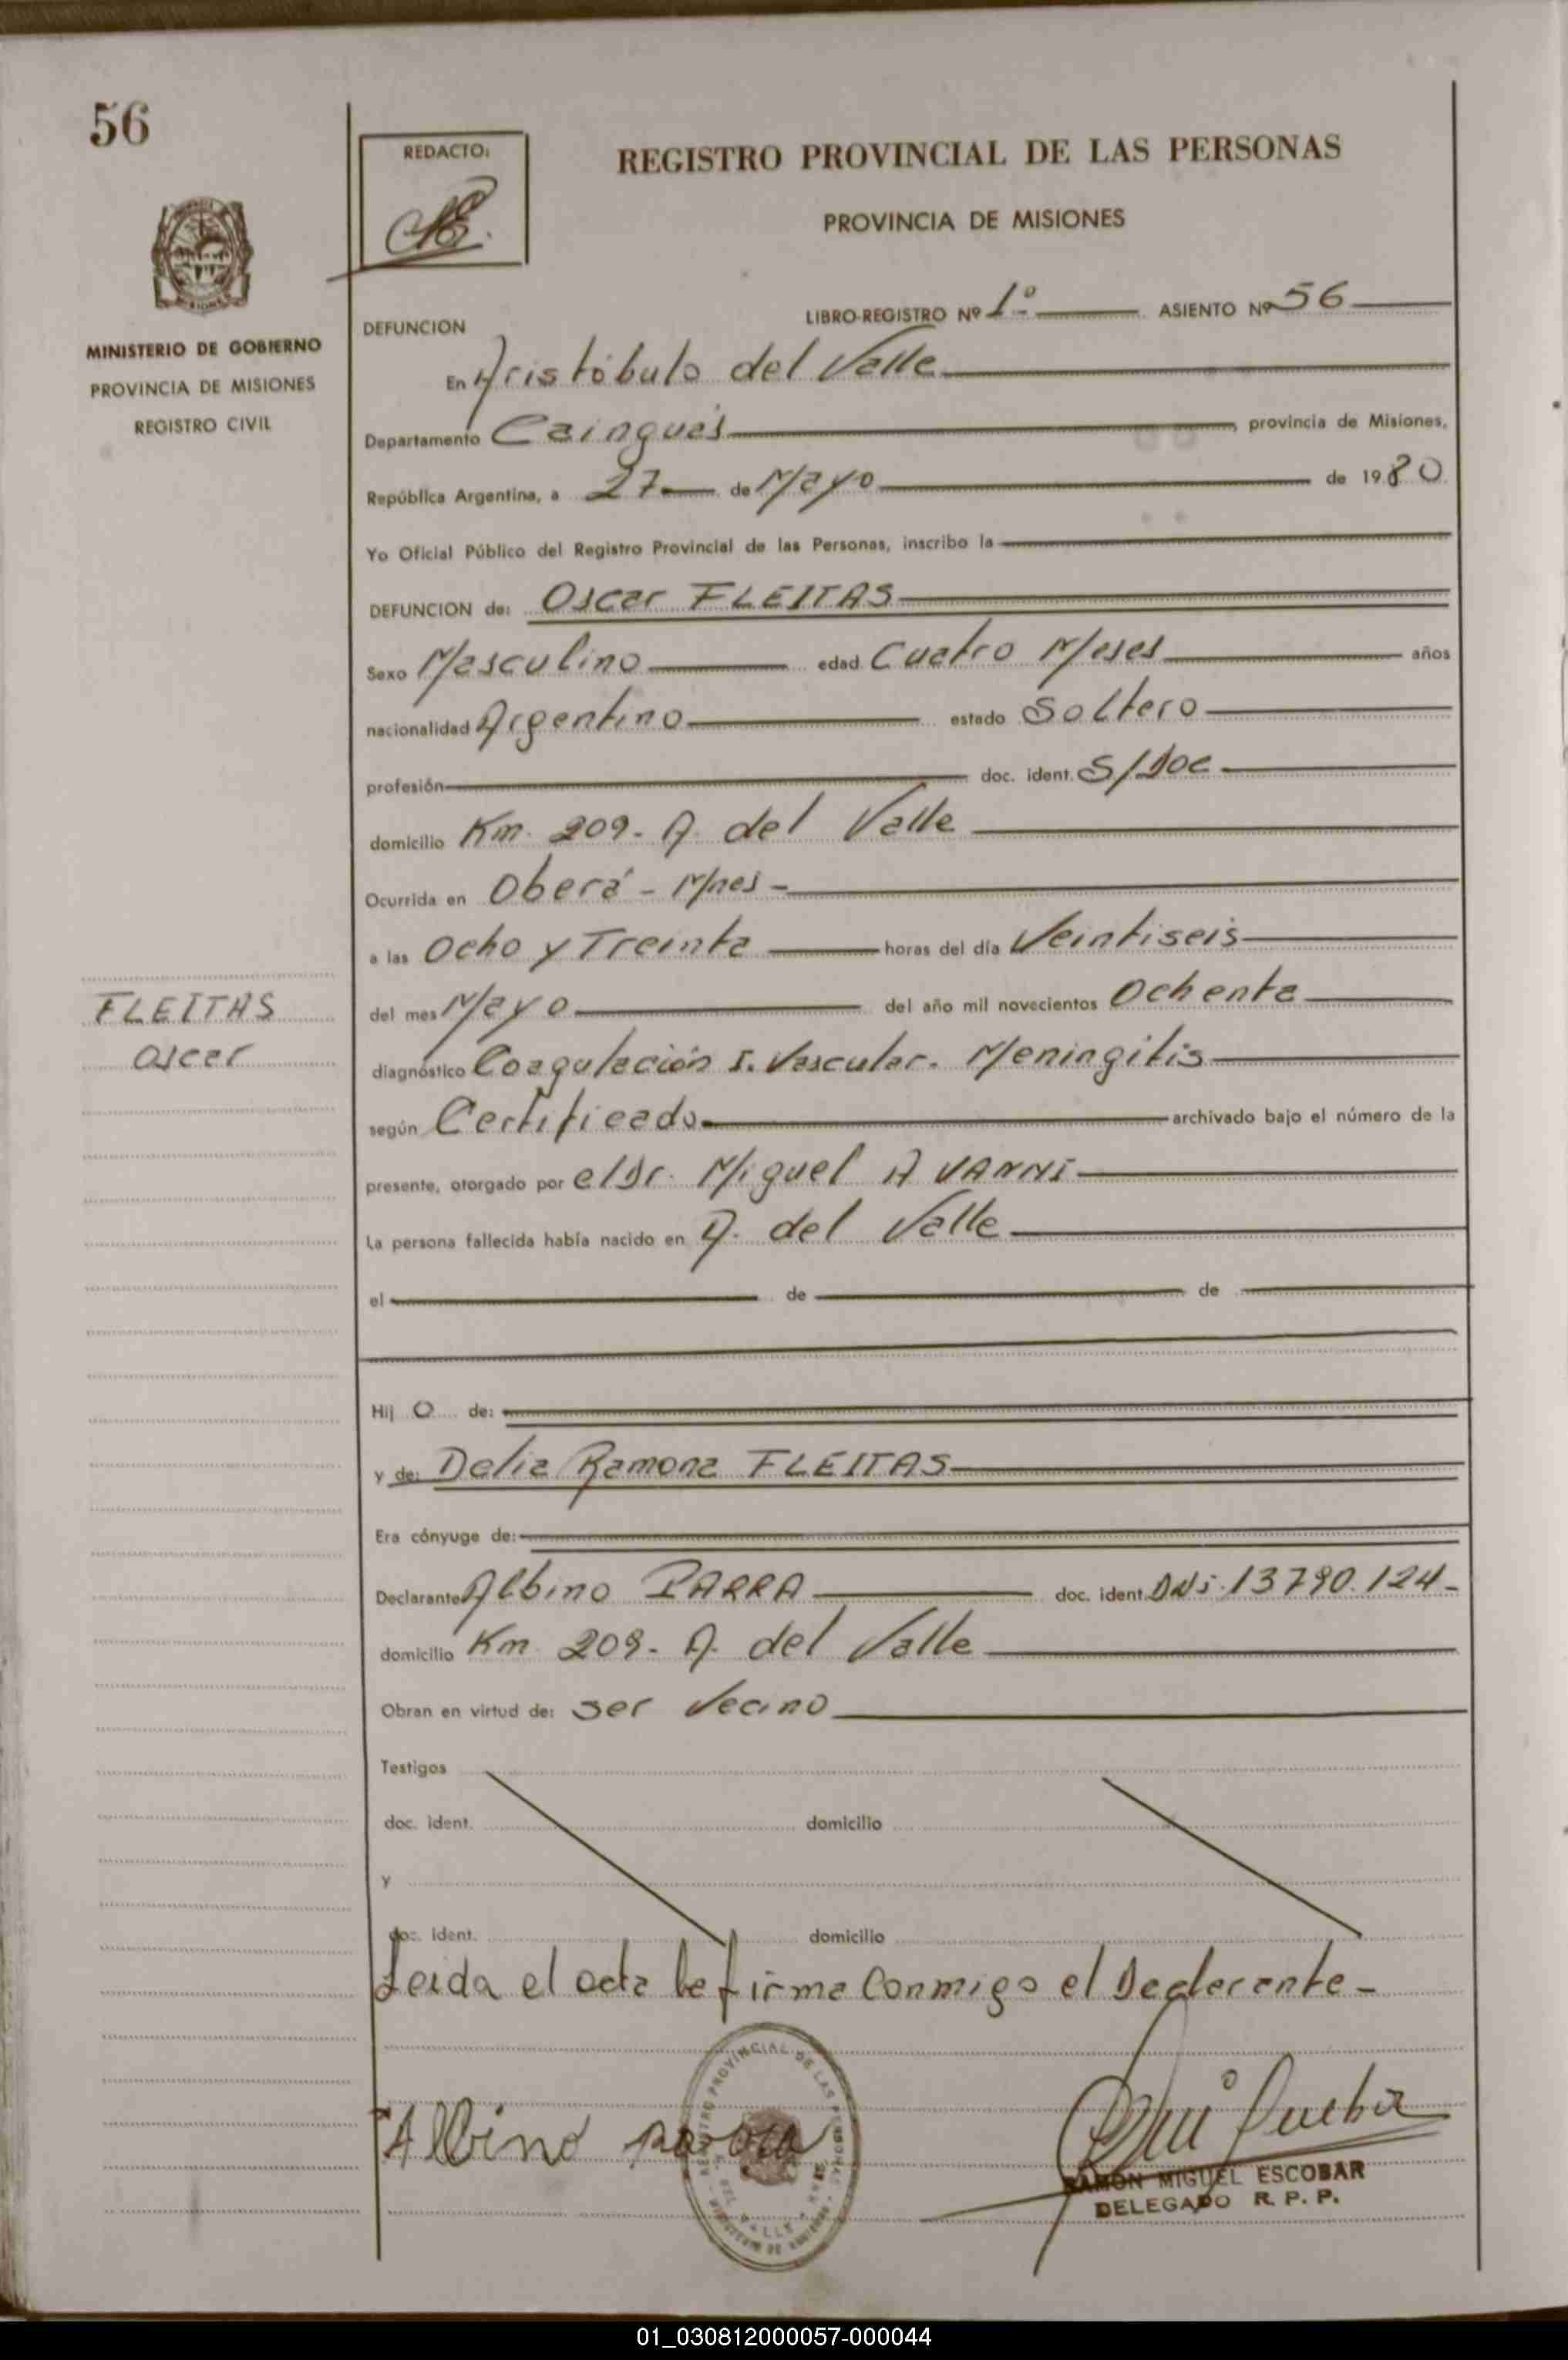 56
REDACTO:
REGISTRO PROVINCIAL DE LAS PERSONAS
PROVINCIA DE MISIONES
MINISTERIO DE GOBIERNO
PROVINCIA DE MISIONES
REGISTRO CIVIL
LIBRO-REGISTRO Nº 1º ASIENTO Nº 56
DEFUNCION
En Aristóbulo del Valle
Departamento Cainguás, provincia de Misiones,
República Argentina, a 27 de Mayo de 1980
Yo Oficial Público del Registro Provincial de las Personas, inscribo la
DEFUNCION de: Oscar FLEITAS
Sexo Masculino edad Cuatro Meses años
nacionalidad Argentino estado Soltero
profesión doc. ident. S/Doc
domicilio Km. 209- A. del Valle
Ocurrida en Oberá - Mnes -
a las Ocho y Treinta horas del día Veintiseis
del mes Mayo del año mil novecientos Ochenta
FLEITAS
Oscar
diagnóstico Coagulación I. Vascular. Meningitis
según Certificado archivado bajo el número de la
presente, otorgado por el Dr. Miguel A VANNI
La persona fallecida había nacido en A. del Valle
el de de
Hij o de:
y de: Delia Ramona FLEITAS
Era cónyuge de:
Declarante Albino PARRA doc. ident. DNI. 13790.124-
domicilio Km 209- A. del Valle
Obran en virtud de: ser Vecino
Testigos
doc. ident. domicilio
y
doc. ident. domicilio
Leida el acta la firma Conmigo el Declarante-
Albino parra
REGISTRO PROVINCIAL DE LAS PERSONAS
DEL VALLE
MINISTERIO DE GOBIERNO
RAMON MIGUEL ESCOBAR
DELEGADO R. P. P.
01_030812000057-000044